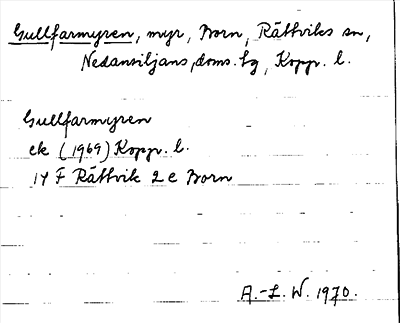 Gullfarmyren, myr, Born, Rättviks sn,
Nedansiljans doms. hg, Kopp. l.
Gullfarmyren
ek (1969) Kopp. l.
14 F Rättvik 2 e Born
A.-L. W. 1970.